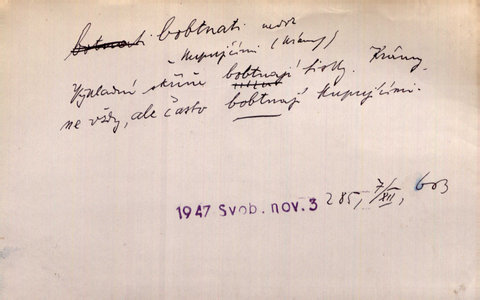 bobtnati nedok
kupujícími (krámy)
Výkladní skříně bobtnají lidly. Krámy
ne vždy, ale často bobtnají kupujícími.
1947 Svob. nov. 3 285, 7/XII, b03